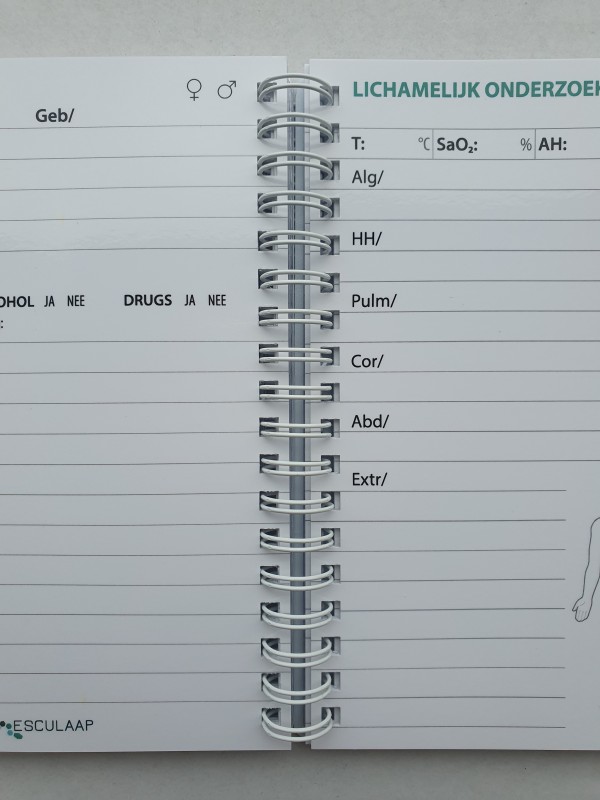 ♀ ♂
Geb/
OHOL JA NEE DRUGS JA NEE
:
ESCULAAP
LICHAMELIJK ONDERZOEK
T: °C SaO₂: % AH:
Alg/
HH/
Pulm/
Cor/
Abd/
Extr/